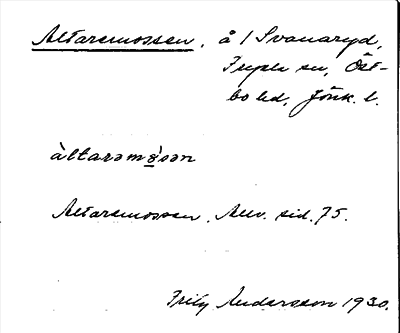 Altaremossen, å / Svanaryd,
Fryele sn, Öst-
bo hd, Jönk. l.
àltarəmo̱sən
Altaremossen. Anv. sid. 75.
Fritz Andersson 1930.